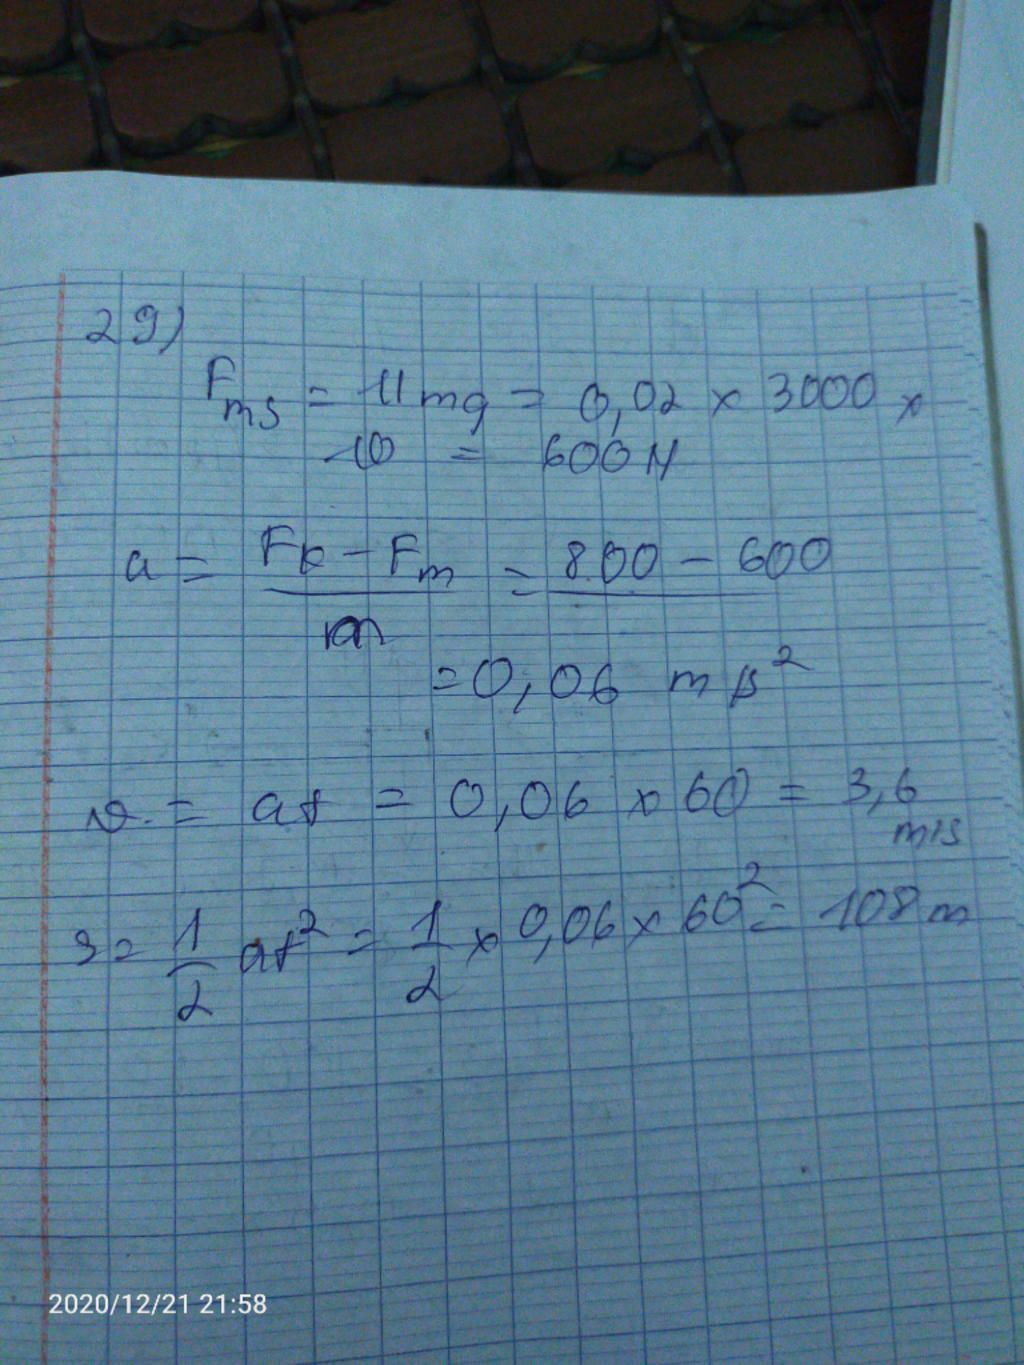 29)
Fms = μmg = 0,02 x 3000 x
10 = 600N
a = Fk - Fm / m = 800 - 600
= 0,06 m/s²
v = at = 0,06 x 60 = 3,6
m/s
s = 1/2 at² = 1/2 x 0,06 x 60² = 108m
2020/12/21 21:58